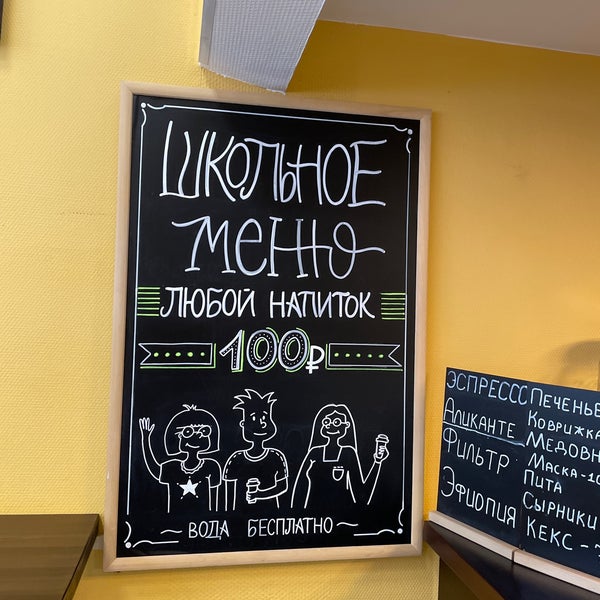 ШКОЛЬНОЕ
МЕНЮ
ЛЮБОЙ НАПИТОК
100₽
~ ВОДА БЕСПЛАТНО ~
ЭСПРЕССО
АЛИКАНТЕ
ФИЛЬТР
ЭФИОПИЯ
ПЕЧЕНЬЕ
КОВРИЖКА
МЕДОВН
МАСКА-10
ПИТА
СЫРНИКИ
КЕКС -